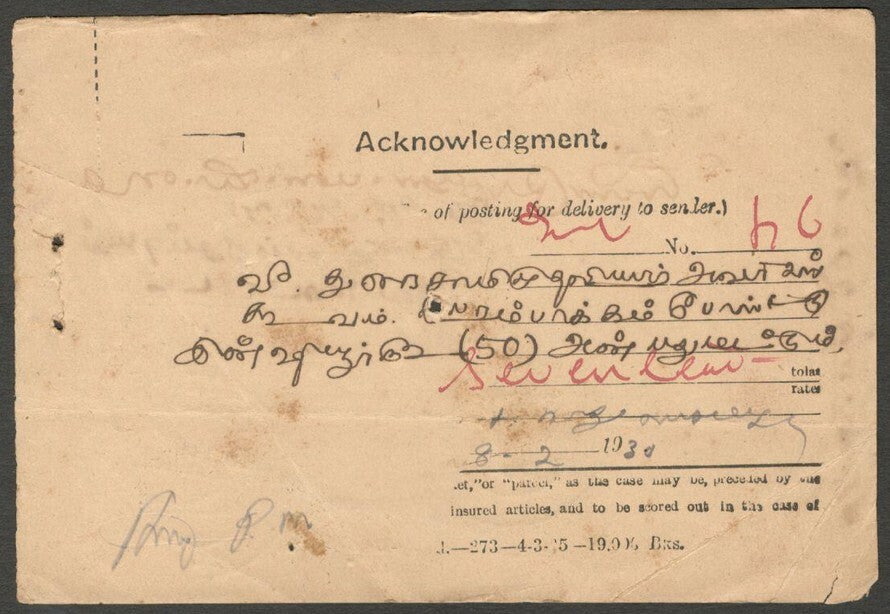 Acknowledgment.
of posting for delivery to sender.)
No. 176
வீ. துரைசாமி முதலியார் அவர்கள்
கூவம். பேரம்பாக்கம் போஸ்டு
இன்ஷியூர்டு (50) அன்பது மட்டும்
Seventeen
tolas
rates
8-2 1930
et," or "parcel," as the case may be, preceded by the
insured articles, and to be scored out in the case of
—273—4-3- 5 —19,00 Bks.
P. M